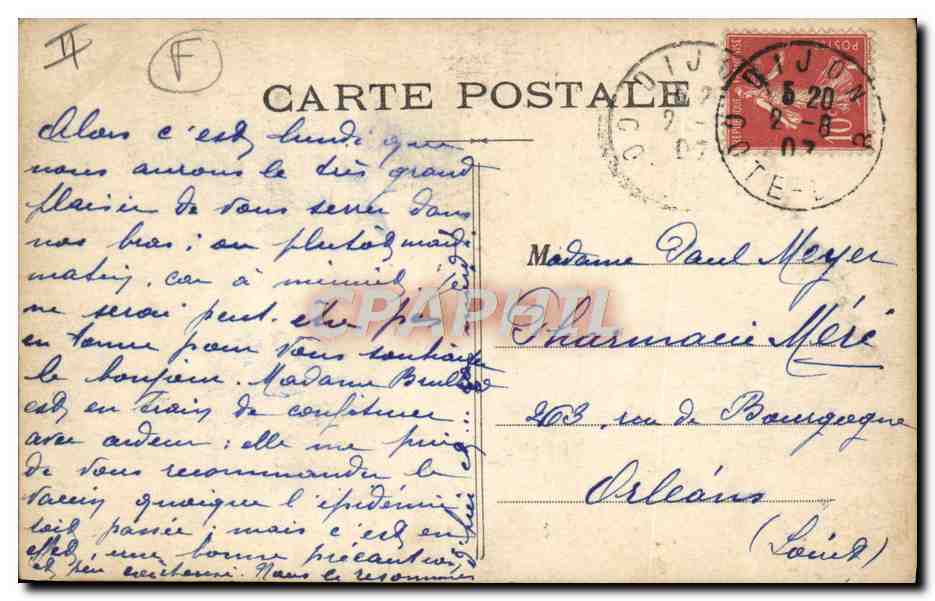 II
F
CARTE POSTALE
DIJON
COTE-D'OR
5 20
2-8
07
POSTES
10
Alors c'est lundi que
nous aurons le très grand
plaisir de vous serrer dans
nos bras ; ou plutôt mardi
matin, car à minuit je
ne serai peut-être pas
en tenue pour vous souhaiter
le bonjour. Madame
est en train de confiturer
avec ardeur : elle me prie
de vous recommander le
vaccin quoique l'épidémie
soit passée ; mais c'est en
effet, une bonne précaution,
et peu coûteuse. Nous le
Madame Paul Meyer
Pharmacie Méré
263, rue de Bourgogne
Orléans
(Loiret)
CPAPHIL